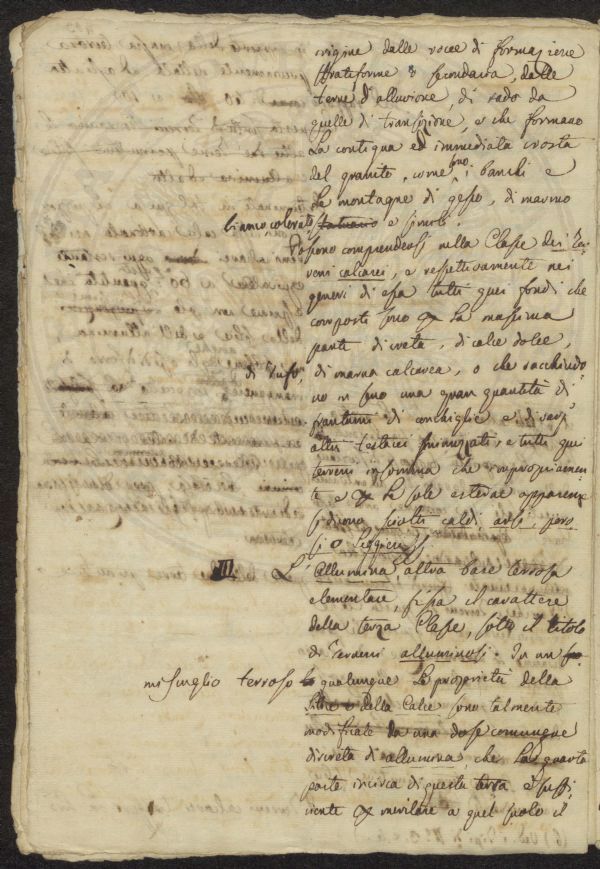 origine dalle rocce di formazione
stratiforme o secondaria, dalle
terre d'alluvione, di rado da
quelle di transizione, e che formano
la contigua ed immediata crosta
del granito, come sono i banchi e
le montagne di gesso, di marmo
bianco, colorato, statuario e simili.
Possono comprendersi nella Classe dei Ter-
reni calcarei, e respettivamente nei
generi di essa tutti quei fondi che
composti sono per la massima
parte di creta, di calce dolce,
di Tufo, di marna calcarea, o che racchiudo
no in seno una gran quantità di
frantumi di conchiglie e di varj
altri testacei sminuzzati, e tutti quei
terreni insomma che impropriamen-
te e per le sole esterne apparenze
si dicono sciolti caldi arsi poro
si o leggieri
III L'Allumina, altra base terrosa
elementare, fissa il carattere
della terza Classe, sotto il titolo
di Terreni alluminosi. In un
miscuglio terroso qualunque le proprietà della
Silice e della Calce sono talmente
modificate da una dose comunque
discreta di allumina, che la quarta
parte incirca di questa terra è suffi
ciente per meritare a quel suolo il